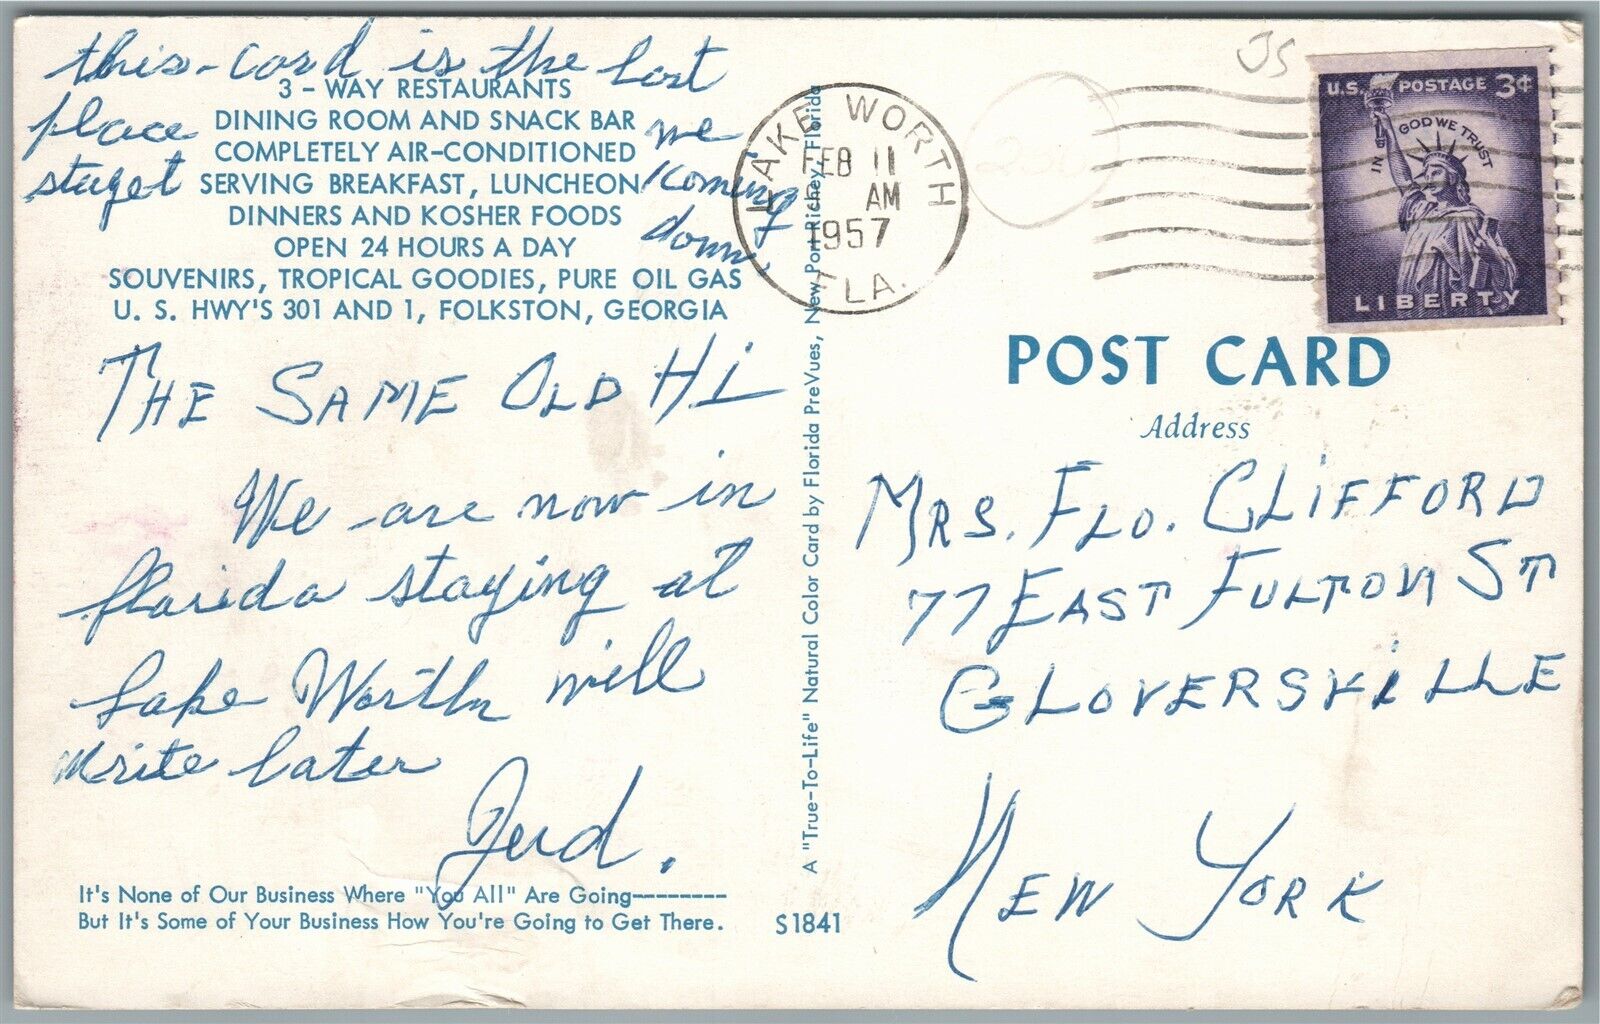 this-card is the last
place we
stayet coming
down.
3 - WAY RESTAURANTS
DINING ROOM AND SNACK BAR
COMPLETELY AIR-CONDITIONED
SERVING BREAKFAST, LUNCHEON
DINNERS AND KOSHER FOODS
OPEN 24 HOURS A DAY
SOUVENIRS, TROPICAL GOODIES, PURE OIL GAS
U. S. HWY'S 301 AND 1, FOLKSTON, GEORGIA
THE SAME OLD HI
We are now in
florida staying at
Lake Worth will
write later
It's None of Our Business Where "You All" Are Going--------
But It's Some of Your Business How You're Going to Get There.
S1841
A "True-To-Life" Natural Color Card by Florida PreVues, New Port Richey, Florida
LAKE WORTH
FEB 11
AM
1957
FLA.
JS
200
U.S. POSTAGE 3¢
IN GOD WE TRUST
LIBERTY
POST CARD
Address
MRS. FLO. CLIFFORD
77 EAST FULTON ST
GLOVERSVILLE
NEW YORK